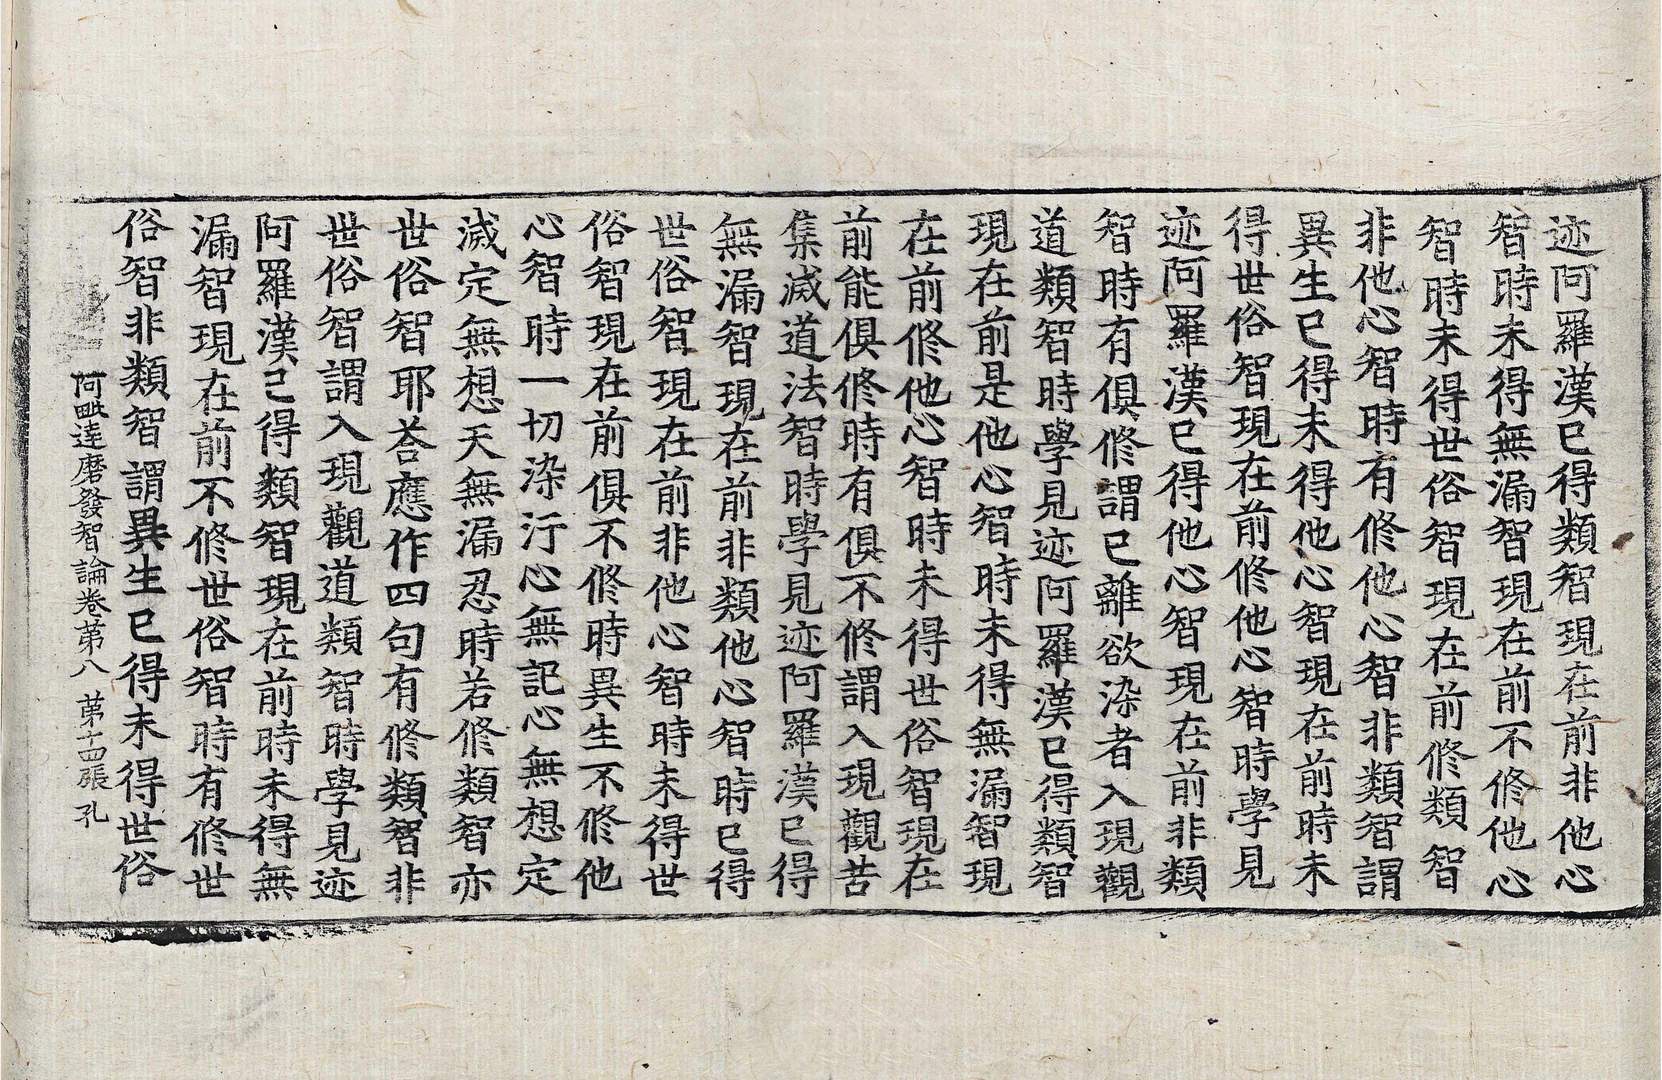 迹阿羅漢已得類智現在前非他心
智時未得無漏智現在前不修他心
智時未得世俗智現在前修類智
非他心智時有修他心智非類智謂
異生已得未得他心智現在前時未
得世俗智現在前修他心智時學見
迹阿羅漢已得他心智現在前非類
智時有俱修謂已離欲染者入現觀
道類智時學見迹阿羅漢已得類智
現在前是他心智時未得無漏智現
在前修他心智時未得世俗智現在
前能俱修時有俱不修謂入現觀苦
集滅道法智時學見迹阿羅漢已得
無漏智現在前非類他心智時已得
世俗智現在前非他心智時未得世
俗智現在前俱不修時異生不修他
心智時一切染汙心無記心無想定
滅定無想天無漏忍時若修類智亦
世俗智耶荅應作四句有修類智非
世俗智謂入現觀道類智時學見迹
阿羅漢已得類智現在前時未得無
漏智現在前不修世俗智時有修世
俗智非類智謂異生已得未得世俗
阿毗達磨發智論卷第八 第十四張 孔